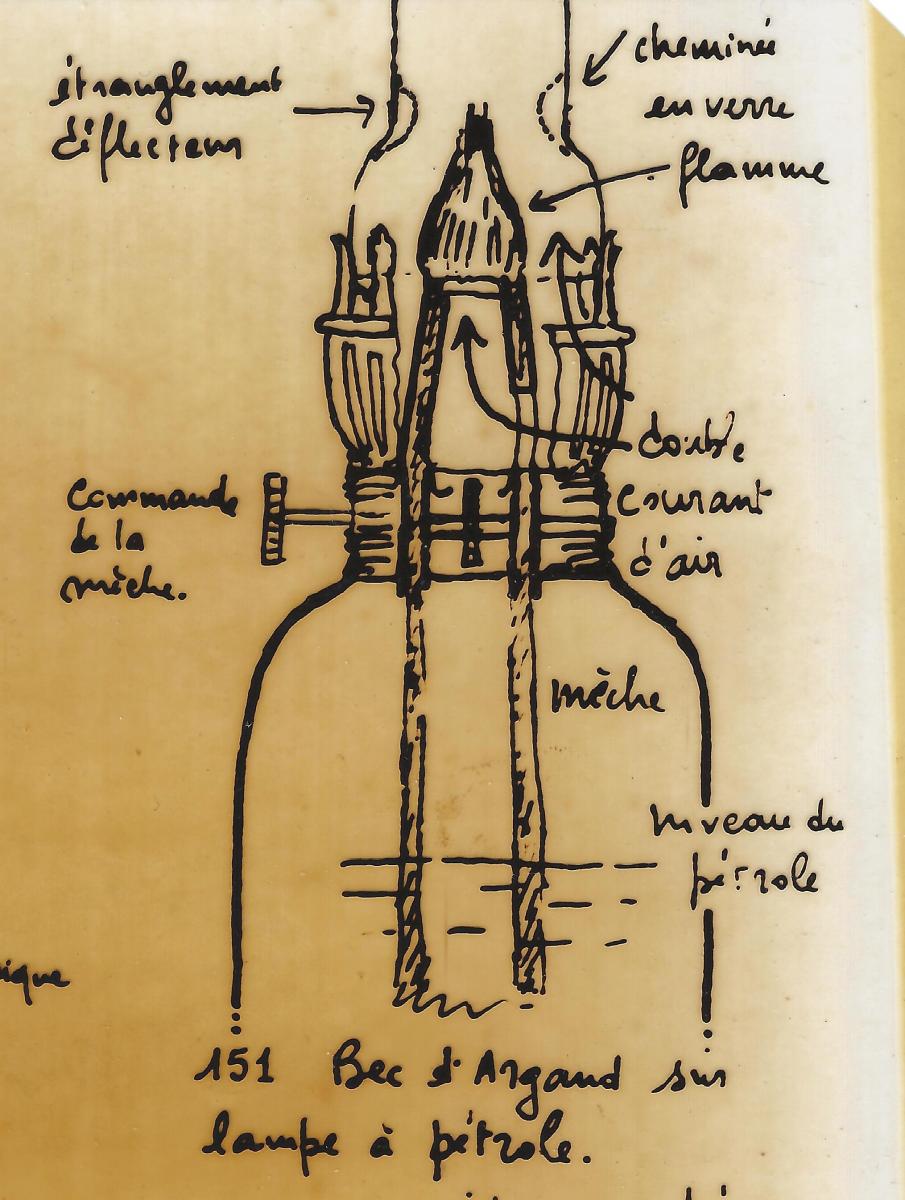 étranglement
déflecteur
cheminée
en verre
flamme
double
courant
d'air
commande
de la
mèche.
mèche
niveau du
pétrole
151 Bec d'Argand sur
lampe à pétrole.